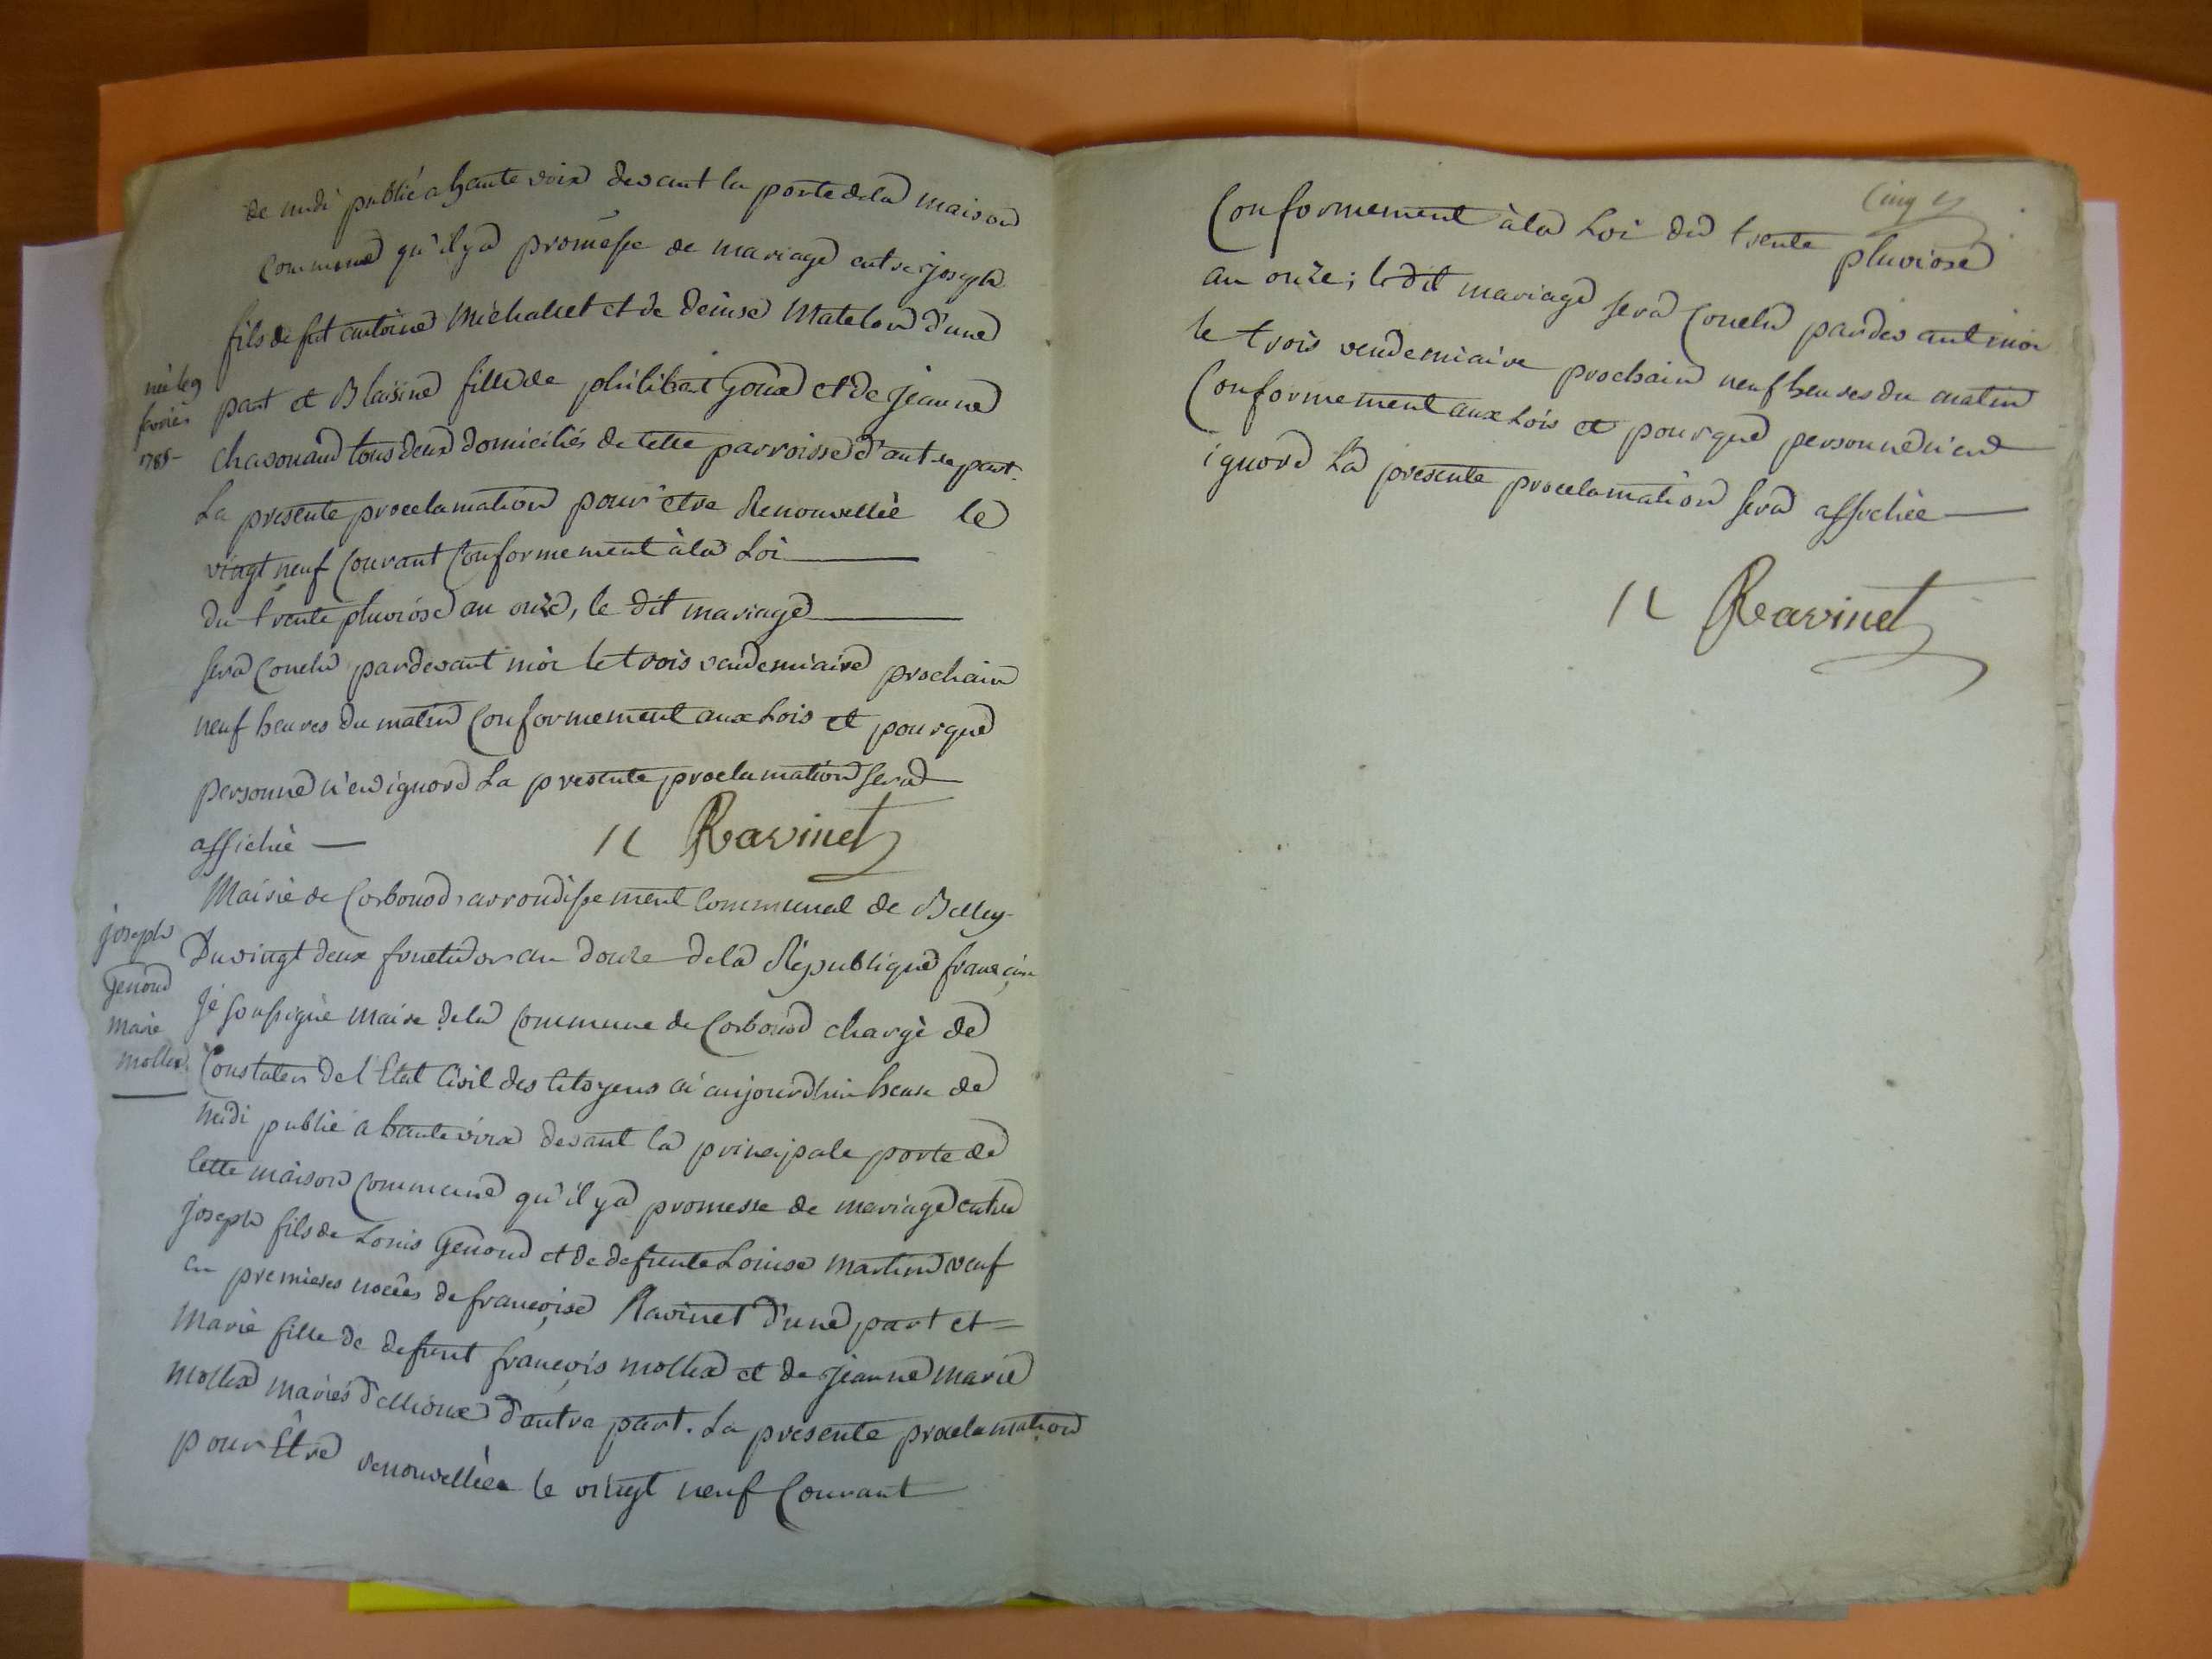 de midi publié a haute voix devant la porte de la maison
Commune qu'il y a promesse de mariage entre joseph
fils de fut antoine Michallet et de denise Matelon d'une
née le 9
fevrier
1785-
part et Blaisine fille de philibert Goux et de jeanne
chavonand tous deux domiciliés de cette parroisse d'autre part.
La presente proclamation pour etre Renouvellée le
vingt neuf Courant Conformement à la Loi
du trente pluviôse an onze, le dit mariage
sera Conclu pardevant moi le trois vendemiaire prochain
neuf heures du matin Conformement aux Lois et pour que
personne n'en ignore La presente proclamation sera
affichée
Ravinet
Mairie de Corbonod, arrondissement Communal de Belley
joseph
Genond
marie
mollex
Du vingt deux fructidor an douze de la République française
Je soussigné maire de la Commune de Corbonod chargé de
Constater de l'Etat Civil des Citoyens ai aujourdhui heure de
midi publié a haute voix devant la principale porte de
Cette maison Commune qu'il y a promesse de mariage entre
joseph fils de Louis Genond et de defunte Louise martin veuf
en premieres noces de françoise Ravinet d'une part et
Marie fille de defunt françois mollex et de jeanne marie
mollex mariés d'autre part. La presente proclamation
pour Etre renouvellée le vingt neuf Courant
Cinq
Conformement à la Loi du trente pluviose
an onze; le dit mariage sera Conclu pardevant moi
le trois vendemiaire prochain neuf heures du matin
Conformement aux Lois et pour que personne n'en
ignore La presente proclamation sera affichée
Ravinet